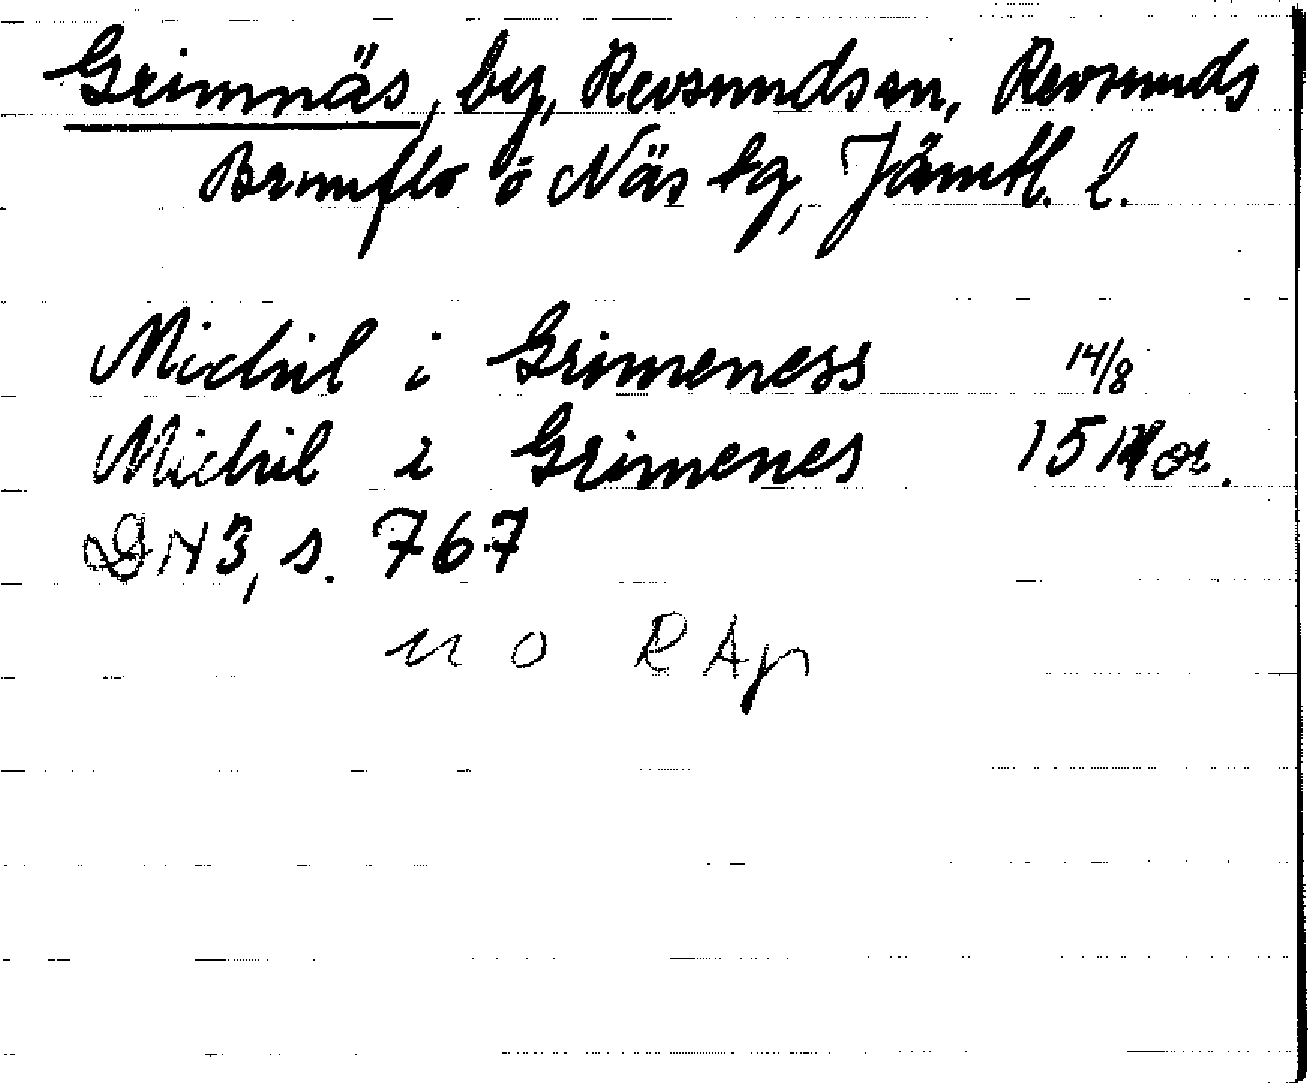 Grimnäs, by, Revsunds sn, Revsunds
Brunflo o Näs tg, Jämtl. l.
Michil i Grimeness 14/8
Michil i Grimenes 15 or.
DN 3, s. 767
n o RAp